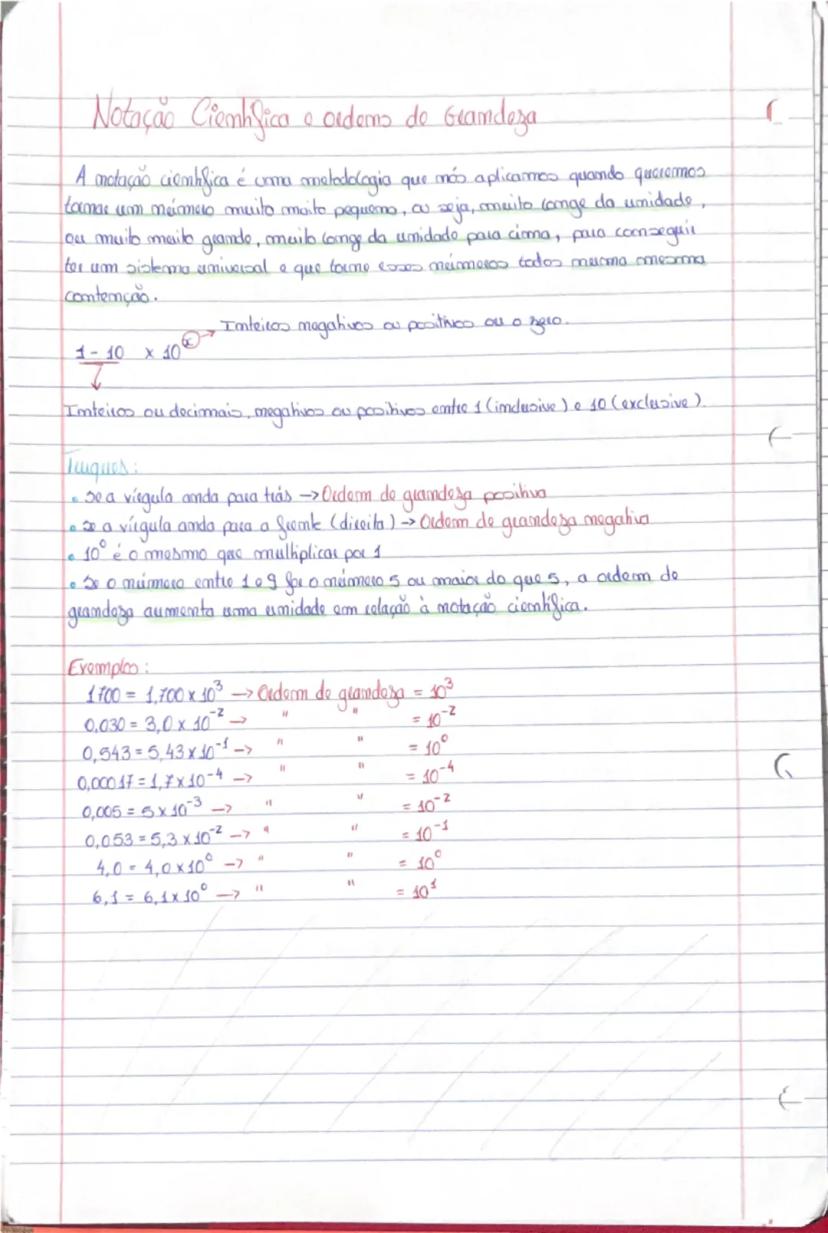 Notação Científica e ordem de Grandeza
A notação científica é uma metodologia que nós aplicamos quando queremos
tornar um número muito muito pequeno, ou seja, muito longe da unidade,
ou muito muito grande, muito longe da unidade para cima, para conseguir
ter um sistema universal e que torne esses números todos numa mesma
contenção.
Inteiros negativos ou positivos ou o zero.
1 - 10 x 10
Inteiros ou decimais, negativos ou positivos entre 1 (inclusive) e 10 (exclusive).
Truques:
• se a vírgula anda para trás → Ordem de grandeza positiva
• se a vírgula anda para a frente (direita) → Ordem de grandeza negativa
• 10⁰ é o mesmo que multiplicar por 1
• Se o número entre 1 e 9 for o número 5 ou maior do que 5, a ordem de
grandeza aumenta uma unidade em relação à notação científica.
Exemplos:
1700 = 1,700 x 10³ → Ordem de grandeza = 10³
0,030 = 3,0 x 10⁻² → " " = 10⁻²
0,543 = 5,43 x 10⁻¹ → " " = 10⁰
0,00017 = 1,7 x 10⁻⁴ → " " = 10⁻⁴
0,005 = 5 x 10⁻³ → " " = 10⁻²
0,053 = 5,3 x 10⁻² → " " = 10⁻¹
4,0 = 4,0 x 10⁰ → " " = 10⁰
6,1 = 6,1 x 10⁰ → " " = 10¹